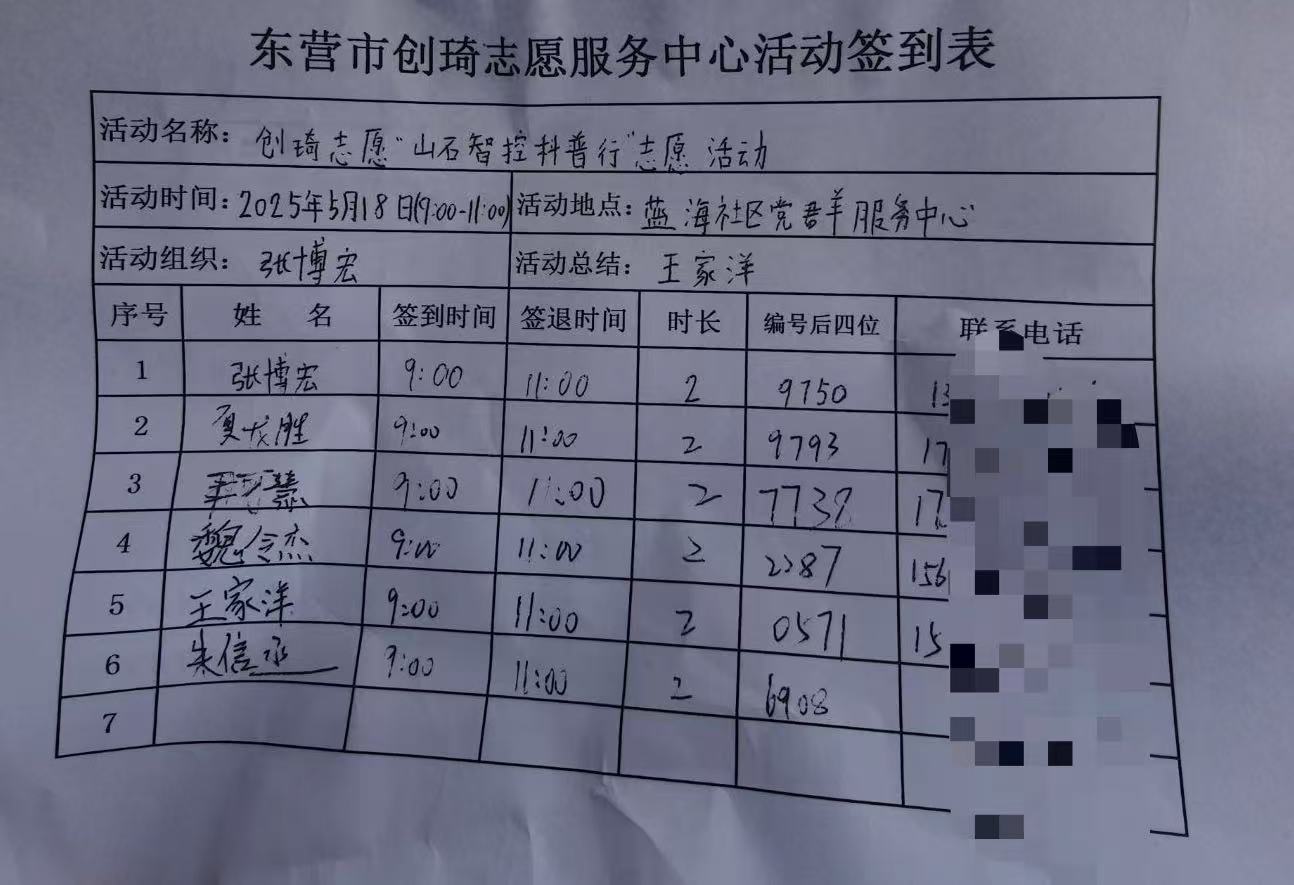 东营市创琦志愿服务中心活动签到表
活动名称：创琦志愿“山石智控科普行”志愿活动
活动时间：2025年5月18日(9:00-11:00) 活动地点：蓝海社区党群服务中心
活动组织：张博宏 活动总结：王家洋
序号 姓名 签到时间 签退时间 时长 编号后四位 联系电话
1 张博宏 9:00 11:00 2 9750 13
2 贾龙胜 9:00 11:00 2 9793 17
3 9:00 11:00 2 17
4 魏令杰 9:00 11:00 2 2287 156
5 王家洋 9:00 11:00 2 0571 15
6 朱信丞 9:00 11:00 2 6908
7